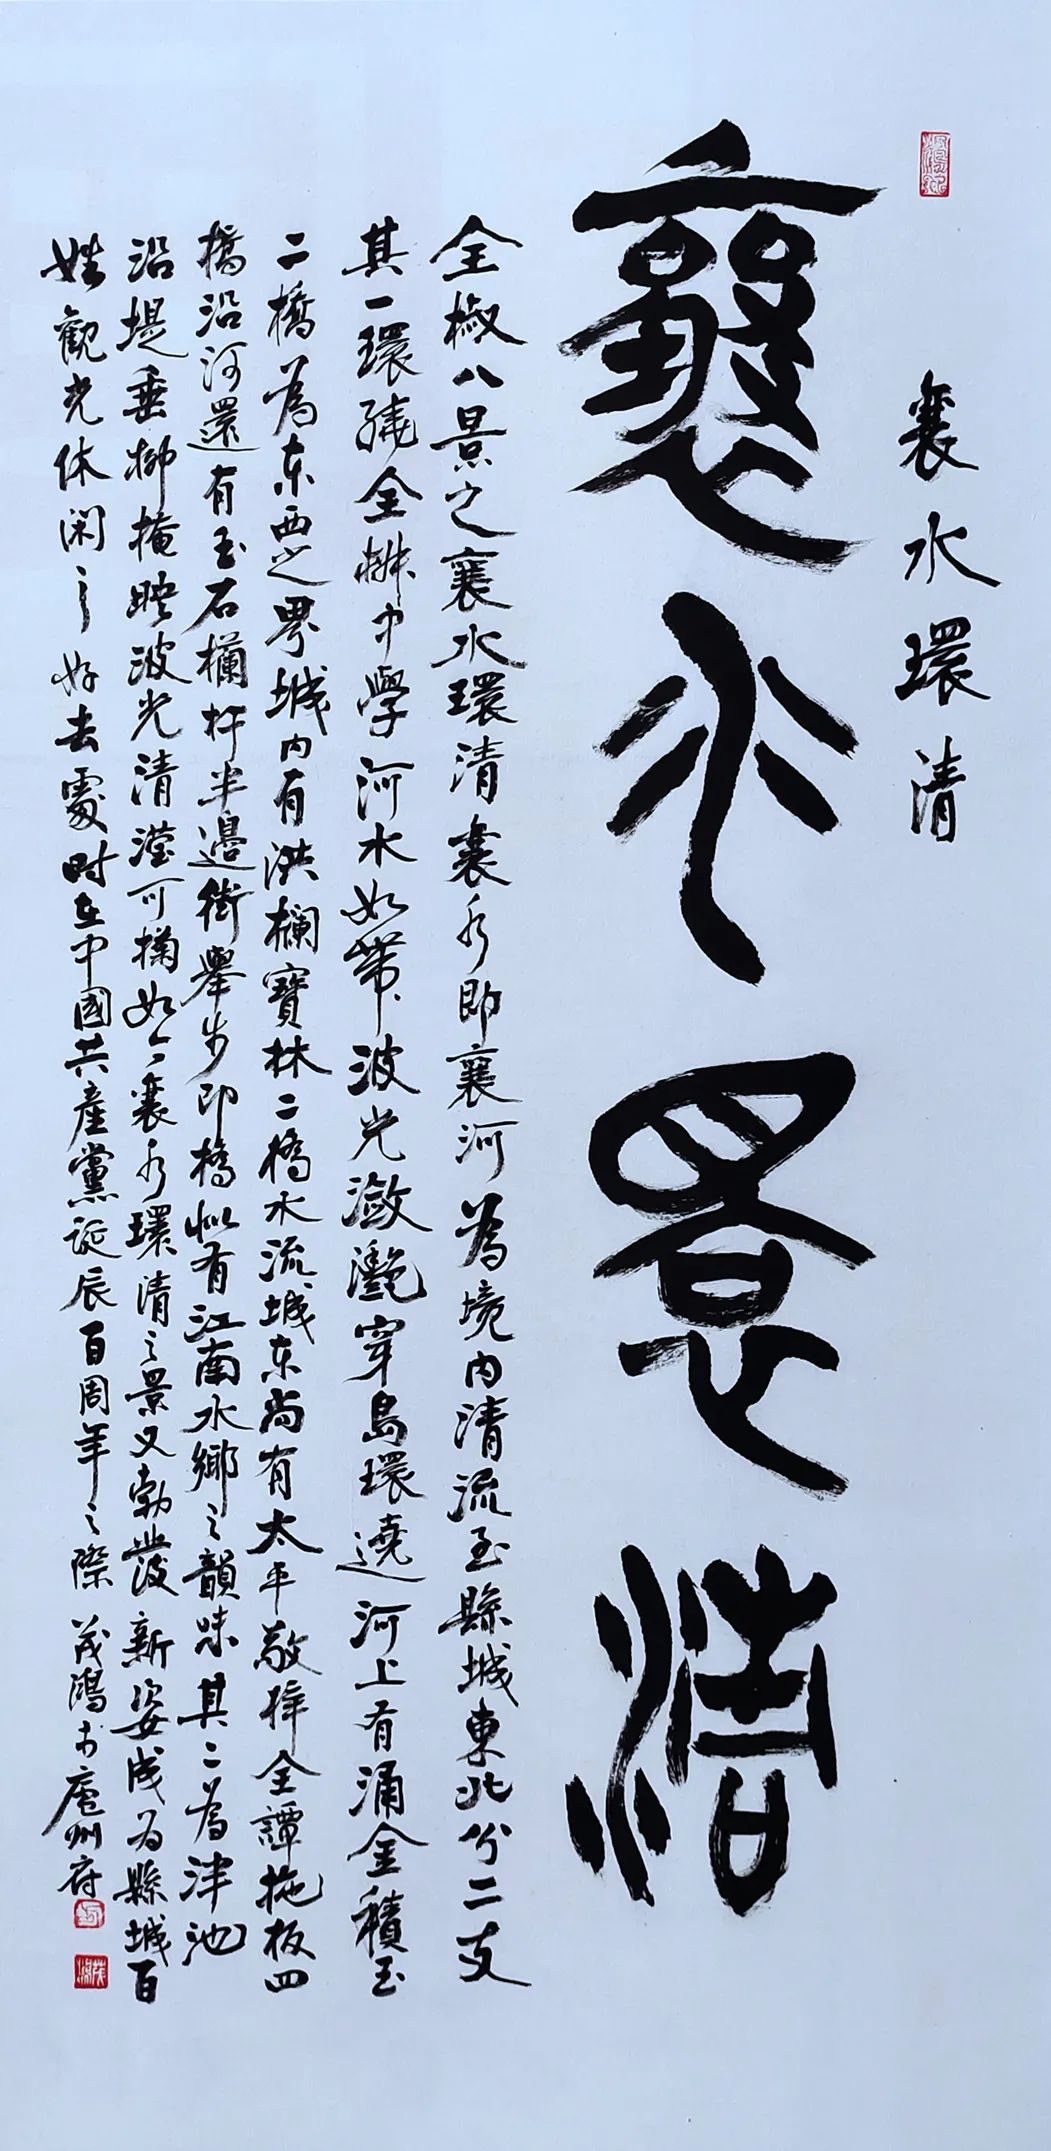 襄水環清
襄水環清
全椒八景之襄水環清襄水即襄河為境内清流至縣城東北分二支
其一環繞全椒中學河水如帶波光瀲灧穿島環遶河上有涌金積玉
二橋為东西之界城内有洪欄寶林二橋水流城东尚有太平敬梓全譚拖板四
橋沿河還有玉石欄杆半邊街舉步即橋似有江南水鄉之韻味其二為津池
沿堤垂柳掩映波光清瀅可掬如今襄水環清之景又勃發新姿成为縣城百
姓觀光休闲之好去處时在中國共產黨誕辰百周年之際茂鴻书廬州府